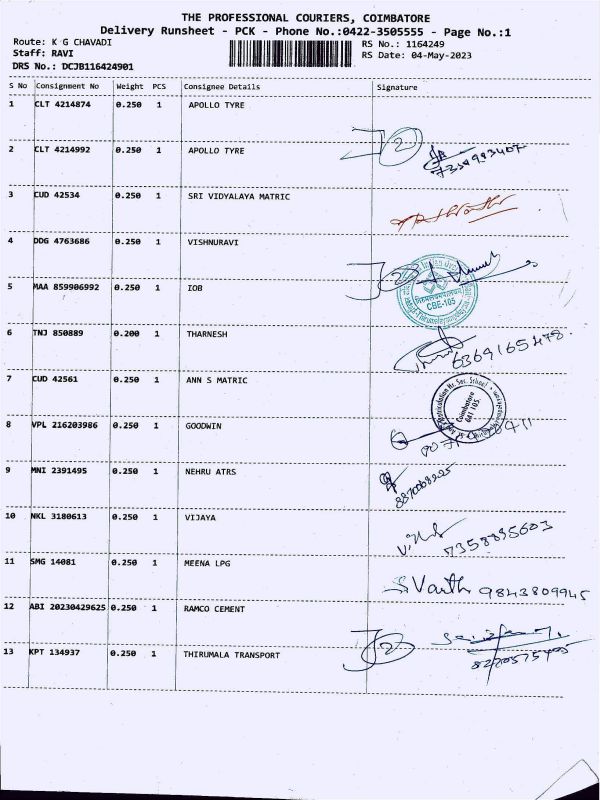 THE PROFESSIONAL COURIERS, COIMBATORE
Delivery Runsheet - PCK - Phone No.:0422-3505555 - Page No.:1
Route: K G CHAVADI RS No.: 1164249
Staff: RAVI RS Date: 04-May-2023
DRS No.: DCJB116424901
S No Consignment No Weight PCS Consignee Details Signature
1 CLT 4214874 0.250 1 APOLLO TYRE
2
2 CLT 4214992 0.250 1 APOLLO TYRE
3 CUD 42534 0.250 1 SRI VIDYALAYA MATRIC
4 DDG 4763686 0.250 1 VISHNURAVI
2
5 MAA 859906992 0.250 1 IOB
CBE-105
6 TNJ 850889 0.200 1 THARNESH
6369165478
7 CUD 42561 0.250 1 ANN S MATRIC
Coimbatore
641 105.
8 VPL 216203986 0.250 1 GOODWIN
9 MNI 2391495 0.250 1 NEHRU ATRS
10 NKL 3180613 0.250 1 VIJAYA
11 SMG 14081 0.250 1 MEENA LPG
9843809945
12 ABI 20230429625 0.250 1 RAMCO CEMENT
2
13 KPT 134937 0.250 1 THIRUMALA TRANSPORT